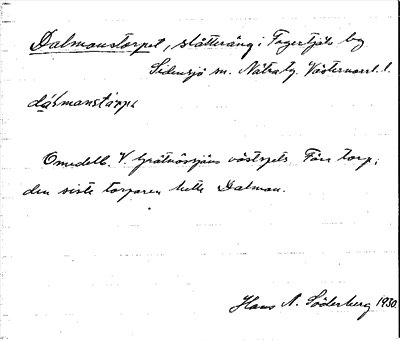 Dalmanstorpet, slåtteräng i Fagersjöts by
Sidensjö sn. Nätra tg. Västernorrl. l.
dálmanstårpe
Omedelb. V. Gråtnässjöns västspets. Förr torp;
den siste torparen hette Dalman.
Hans A. Söderberg 1930.